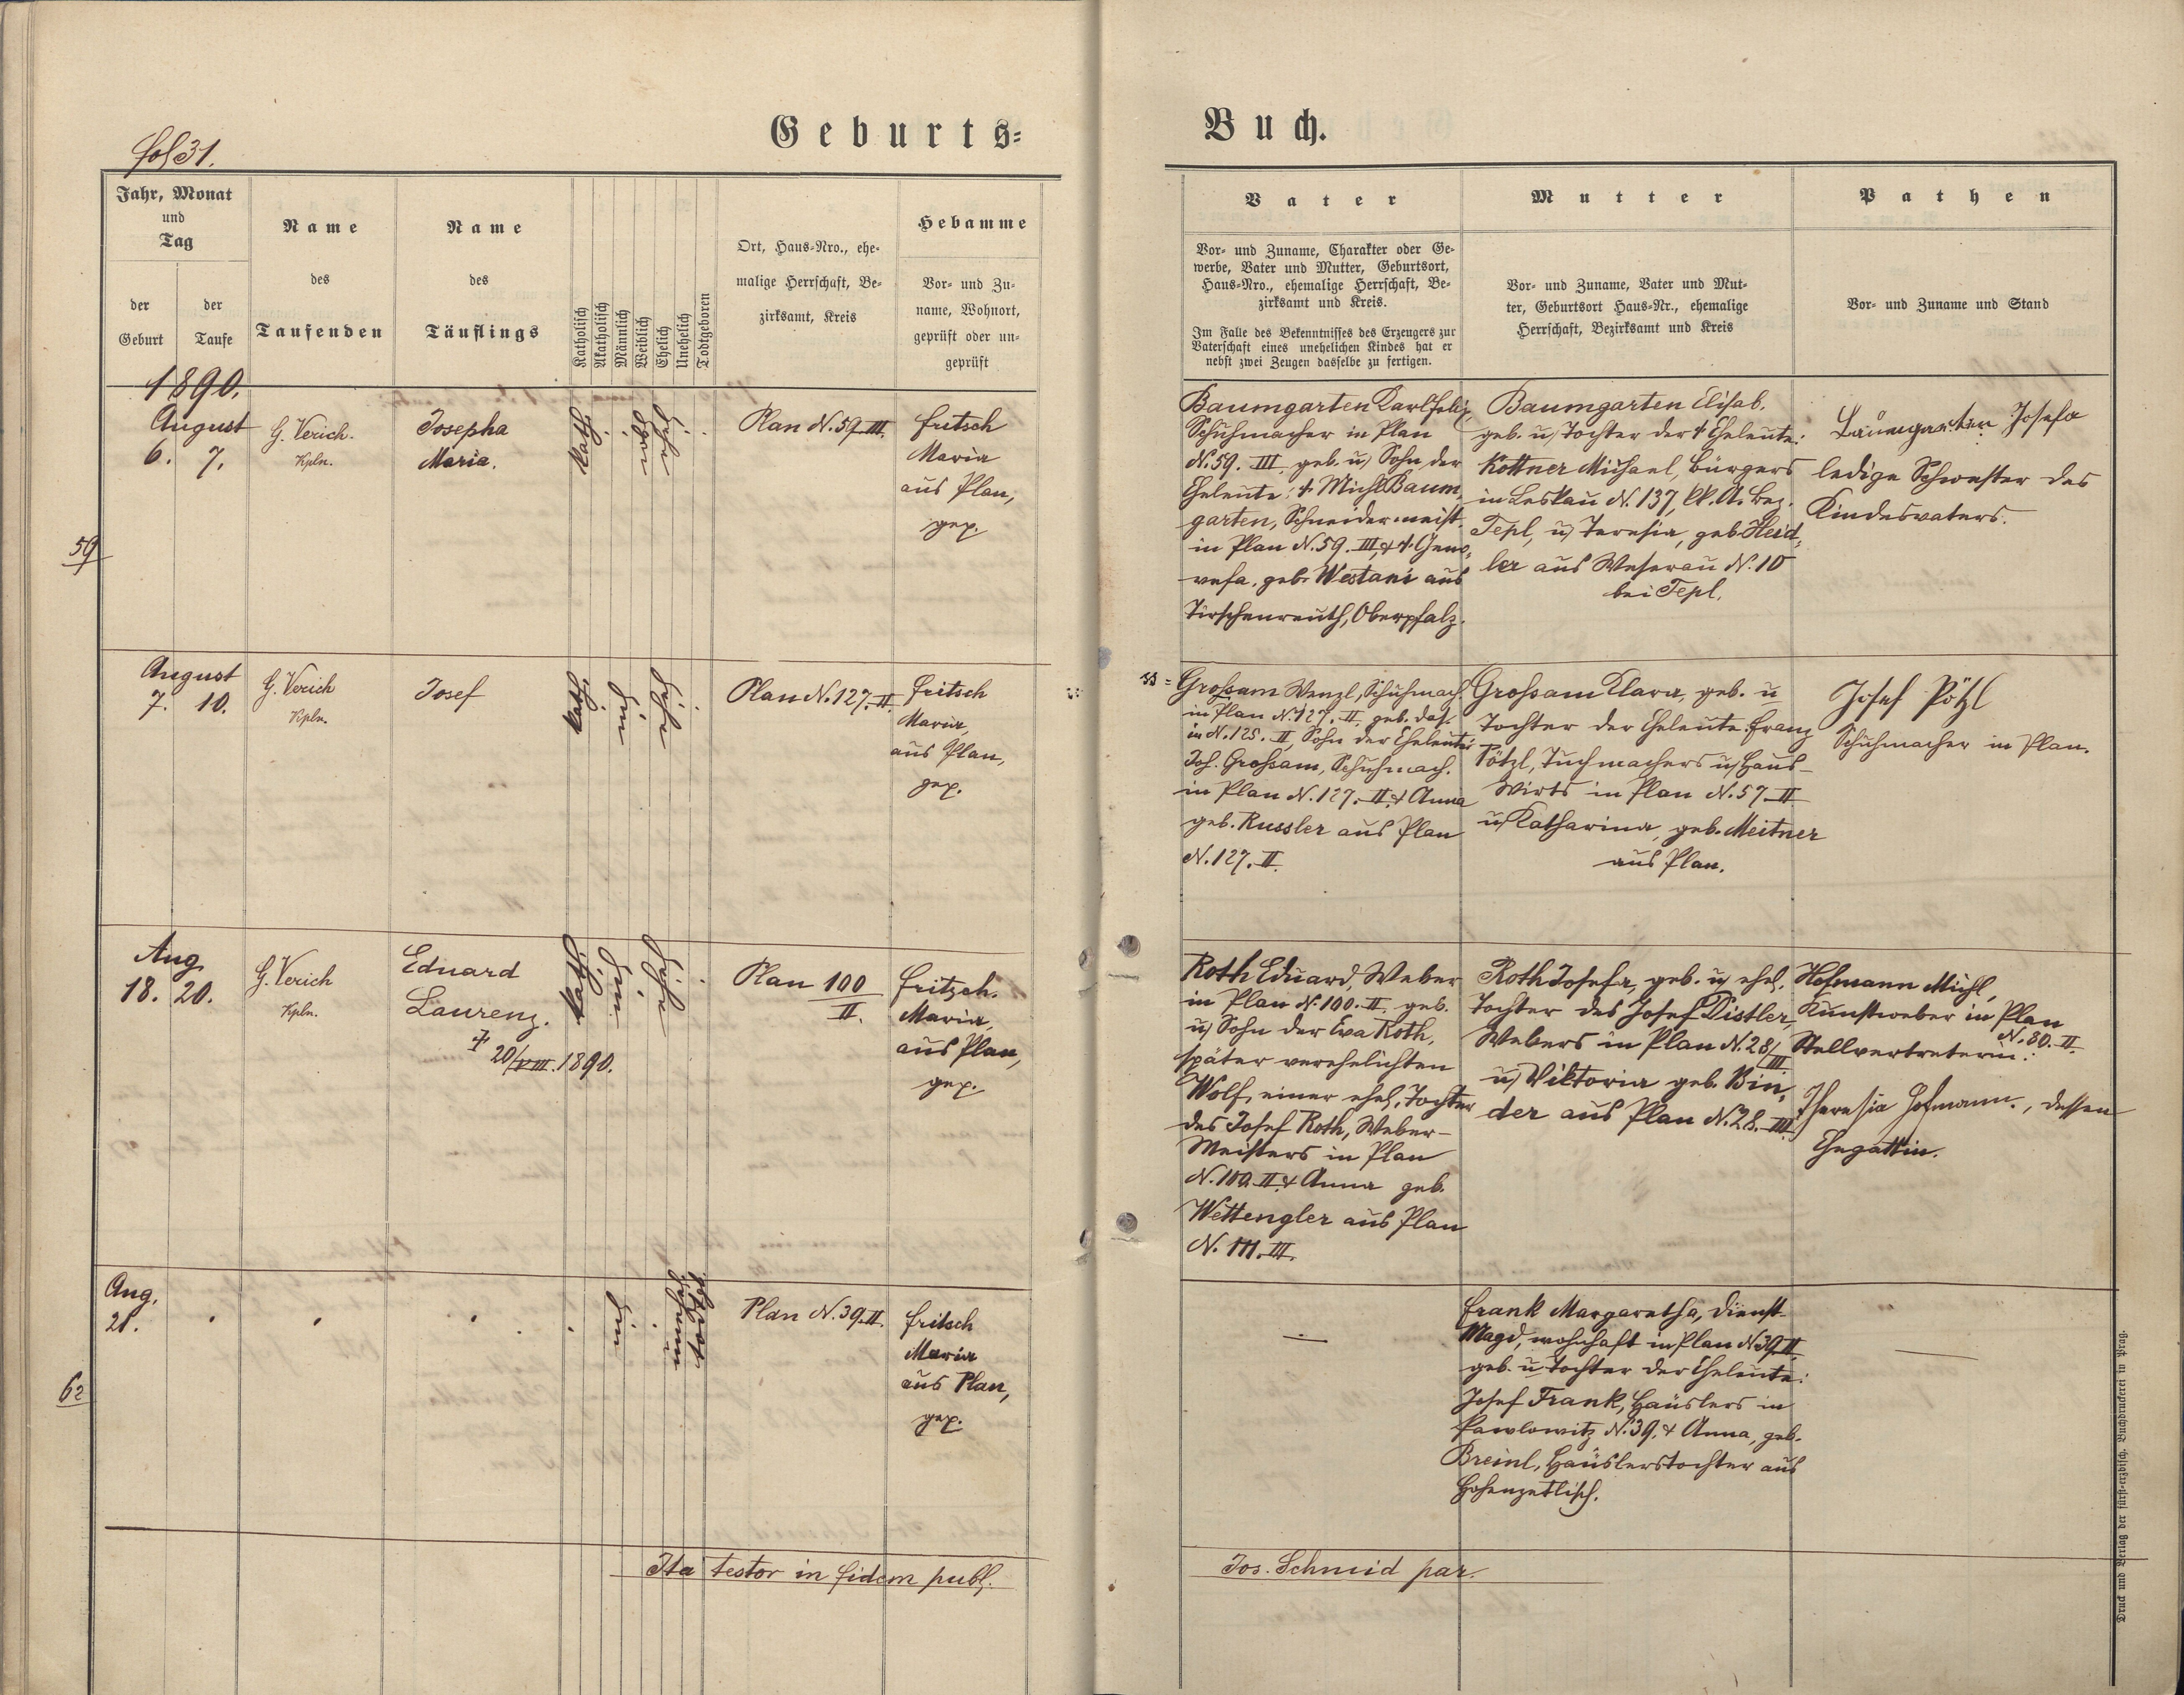 fol 31.
Geburts=
Buch.
Jahr, Monat
und
Tag
der
Geburt
der
Taufe
Name
des
Taufenden
Name
des
Täuflings
Katholisch
Akatholisch
Männlich
Weiblich
Ehelich
Unehelich
Todtgeboren
Ort, Haus-Nro., ehe-
malige Herrschaft, Be-
zirksamt, Kreis
Hebamme
Vor- und Zu-
name, Wohnort,
geprüft oder un-
geprüft
Vater
Vor- und Zuname, Charakter oder Ge-
werbe, Vater und Mutter, Geburtsort,
Haus-Nro., ehemalige Herrschaft, Be-
zirksamt und Kreis.
Im Falle des Bekenntnisses des Erzeugers zur
Vaterschaft eines unehelichen Kindes hat er
nebst zwei Zeugen dasselbe zu fertigen.
Mutter
Vor- und Zuname, Vater und Mut-
ter, Geburtsort Haus-Nr., ehemalige
Herrschaft, Bezirksamt und Kreis
Pathen
Vor- und Zuname und Stand
1890.
59
August
6. 7.
G. Verich.
Kpln.
Josepha
Maria.
kath.
Plan N. 59. III.
Fritsch
Maria
aus Plan,
gep.
Baumgarten Karl Felix,
Schuhmacher in Plan
N. 59. III, geb. u. Sohn der
Eheleute: † Michl Baum-
garten, Schneidermeist.
in Plan N. 59. III, & †. Geno-
vefa, geb. Westani aus
Tirschenreuth, Oberpfalz.
Baumgarten Elisab.
geb. u. Tochter der † Eheleute:
Kottner Michael, Bürgers
in Leskau N. 137, kk. A. Bez.
Tepl, u. Teresia, geb. Heid-
ler aus Weserau N. 10
bei Tepl.
Baumgarten Josefa
ledige Schwester des
Kindesvaters.
August
7. 10.
G. Verich
Kpln.
Josef
kath.
Plan N. 127. II.
Fritsch
Maria,
aus Plan,
gep.
Grossam Wenzl, Schuhmach.
in Plan N. 127. II, geb. das.
in N. 125. II, Sohn der Eheleute:
Joh. Grossam, Schuhmach.
in Plan N. 127. II. & Anna
geb. Russler aus Plan
N. 127. II.
Grossam Klara, geb. u
Tochter der Eheleute: Franz
Pötzl, Tuchmachers u. Haus-
wirts in Plan N. 57. II
u. Katharina, geb. Meitner
aus Plan.
Josef Pötzl
Schuhmacher in Plan.
Aug.
18. 20.
G. Verich
Kpln.
Eduard
Laurenz.
† 20/VIII. 1890.
kath.
Plan 100
II.
Fritzsch.
Maria,
aus Plan,
gep.
Roth Eduard, Weber
in Plan N. 100. II. geb.
u. Sohn der Eva Roth,
später verehelichten
Wolf, einer ehel. Tochter
des Josef Roth, Weber-
Meisters in Plan
N. 100. II. & Anna geb.
Wettengler aus Plan
N. 111. III.
Roth Josefa, geb. u. ehel.
Tochter des Josef Distler,
Webers in Plan N. 28/III
u. Viktoria geb. Bin-
der aus Plan N. 28. III.
Hofmann Michl,
Kunstweber in Plan
N. 80. II.
Stellvertreterin:
Theresia Hofmann., dessen
Ehegattin.
62
Aug.
21.
unehel.
todtgeb.
Plan N. 39. II.
Fritsch
Maria
aus Plan,
gep.
Frank Margaretha, Dienst-
Magd, wohnhaft in Plan N 39. II
geb. u. Tochter der Eheleute:
Josef Frank, Häuslers in
Pawlowitz N. 39. & Anna, geb.
Breinl, Häuslerstochter aus
Hohenzetlisch.
Ita testor in fidem publ.
Jos. Schmid par.
Druck und Verlag der fürst-erzbisch. Buchdruckerei in Prag.